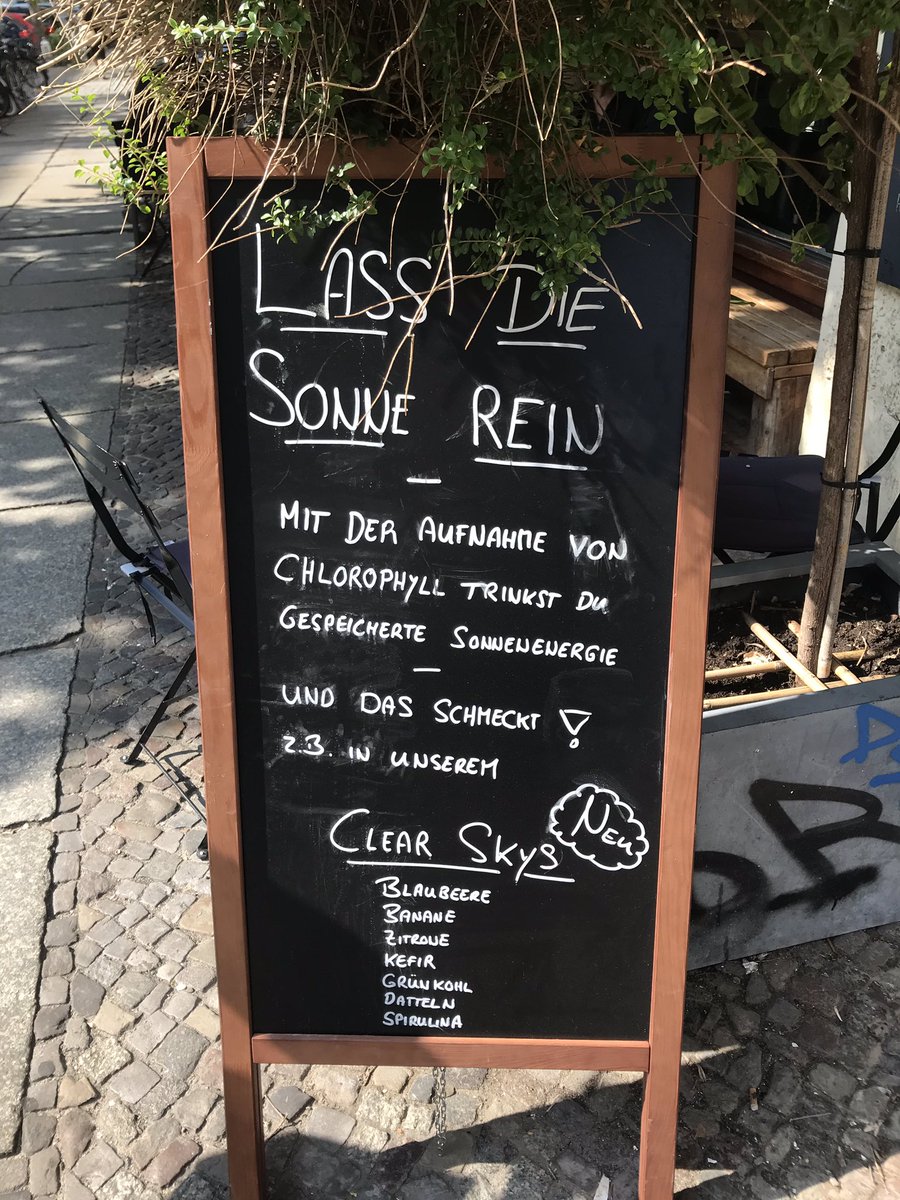 LASS' DIE
SONNE REIN
—
MIT DER AUFNAHME VON
CHLOROPHYLL TRINKST DU
GESPEICHERTE SONNENENERGIE
—
UND DAS SCHMECKT !
Z.B. IN UNSEREM
NEU
CLEAR SKYS
BLAUBEERE
BANANE
ZITRONE
KEFIR
GRÜNKOHL
DATTELN
SPIRULINA